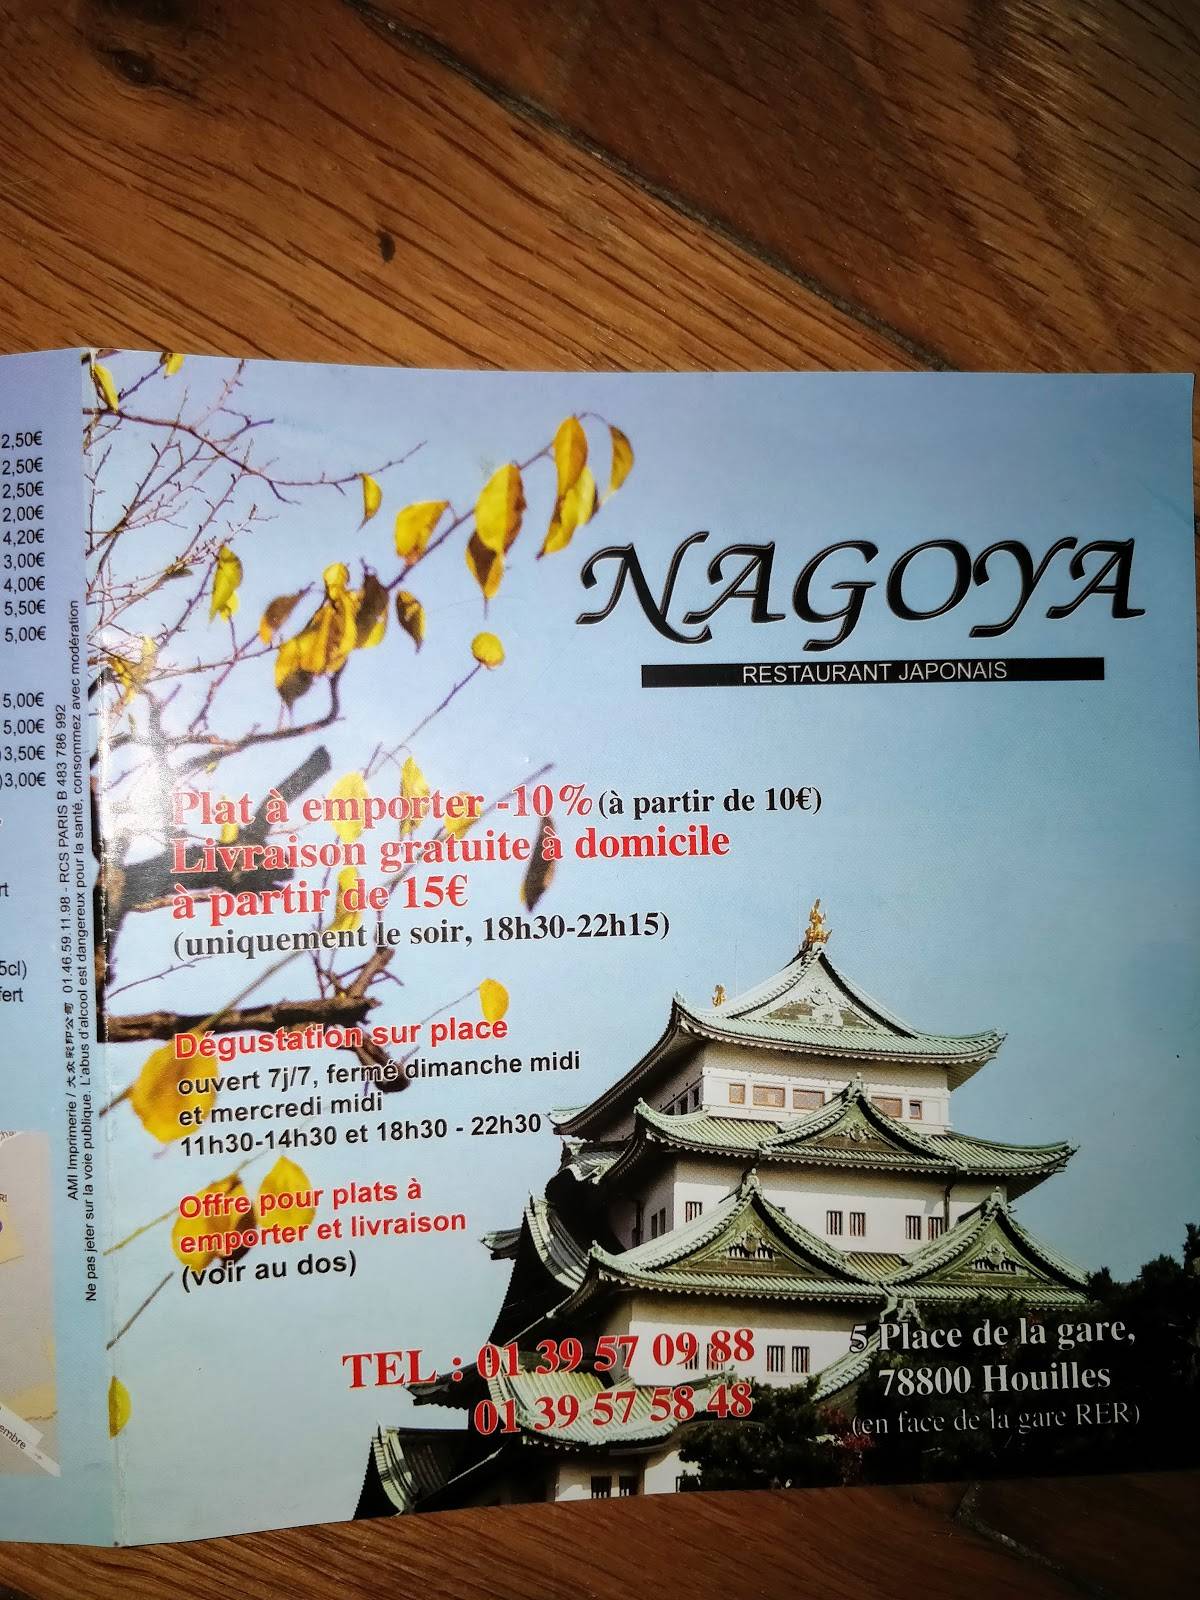 2,50€
2,50€
2,50€
2,00€
4,20€
3,00€
4,00€
5,50€
5,00€
5,00€
5,00€
)3,50€
)3,00€
rt
5cl)
fert
RI
embre
AMI Imprimerie / 大众彩印公司 01.46.59 11.98 - RCS PARIS B 483 786 992
Ne pas jeter sur la voie publique. L'abus d'alcool est dangereux pour la santé, consommez avec modération
NAGOYA
RESTAURANT JAPONAIS
Plat à emporter -10% (à partir de 10€)
Livraison gratuite à domicile
à partir de 15€
(uniquement le soir, 18h30-22h15)
Dégustation sur place
ouvert 7j/7, fermé dimanche midi
et mercredi midi
11h30-14h30 et 18h30 - 22h30
Offre pour plats à
emporter et livraison
(voir au dos)
TEL : 01 39 57 09 88
01 39 57 58 48
5 Place de la gare,
78800 Houilles
(en face de la gare RER)